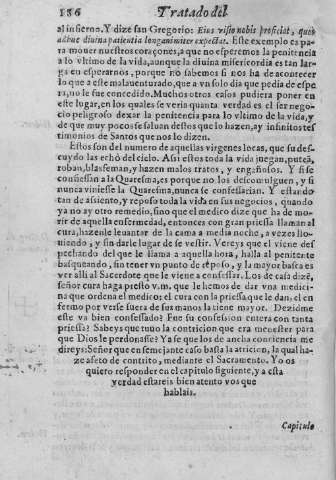 186 Tratado del
al infierno. Y dize san Gregorio: Eius visio nobis proficiat, quos
adhuc diuina patientia longanimiter expectat. Este exemplo es pa-
ra mouer nuestros coraçones, a que no esperemos la penitencia
a lo vltimo de la vida, aunque la diuina misericordia es tan lar-
ga en esperarnos, porque no sabemos si nos ha de acontecer
lo que a este malauenturado, que a vn solo dia que pedia de espe-
ra, no le fue concedido. Muchos otros casos pudiera poner en
este lugar, en los quales se veria quanta verdad es el ser nego-
cio peligroso dexar la penitencia para lo vltimo de la vida, y
de que muy pocos se saluan destos que lo hazen, ay infinitos tes
timonios de Santos que nos lo dizen.
Estos son del numero de aquellas virgenes locas, que su des-
cuydo las echò del cielo. Assi estos toda la vida juegan, puteã,
roban, blasfeman, y hazen malos tratos, y engañosos. Y si se
confiessan a la Quaresma, es porque no los descomulguen, y si
nunca viniesse la Quaresma, nunca se confessarian. Y estando
tan de assiento, y reposo toda la vida en sus negocios, quando
ya no ay otro remedio, sino que el medico dize que ha de mo-
rir de aquella enfermedad, entonces con gran priessa llaman al
cura, hazenle leuantar de la cama a media noche, a vezes llo-
uiendo, y sin darle lugar de se vestir. Vereys que el viene des
pechando del que le llaman a aquella hora, halla al penitente
basqueando, sin tener vn punto de reposo, y la mayor basca es
ver alli al Sacerdote que le viene a confessar. Los de casa dizẽ,
señor cura haga presto v.m. que le hemos de dar vna medici-
na que ordena el medico: el cura con la priessa que le dan, el en
fermo por verse fuera de sus manos la tiene mayor. Dezidme
este va bien confessado? Fue su confession entera con tanta
priessa? Sabeys que tuuo la contricion que era menester para
que Dios le perdonasse? Ya se que los de ancha conciencia me
direys: Señor que en semejante caso basta la atricion, la qual ha-
ze asseto de contrito, mediante el Sacramento. Yo os
quiero responder en el capitulo siguiente, y a esta
verdad estareis bien atento vos que
hablais.
Capitulo